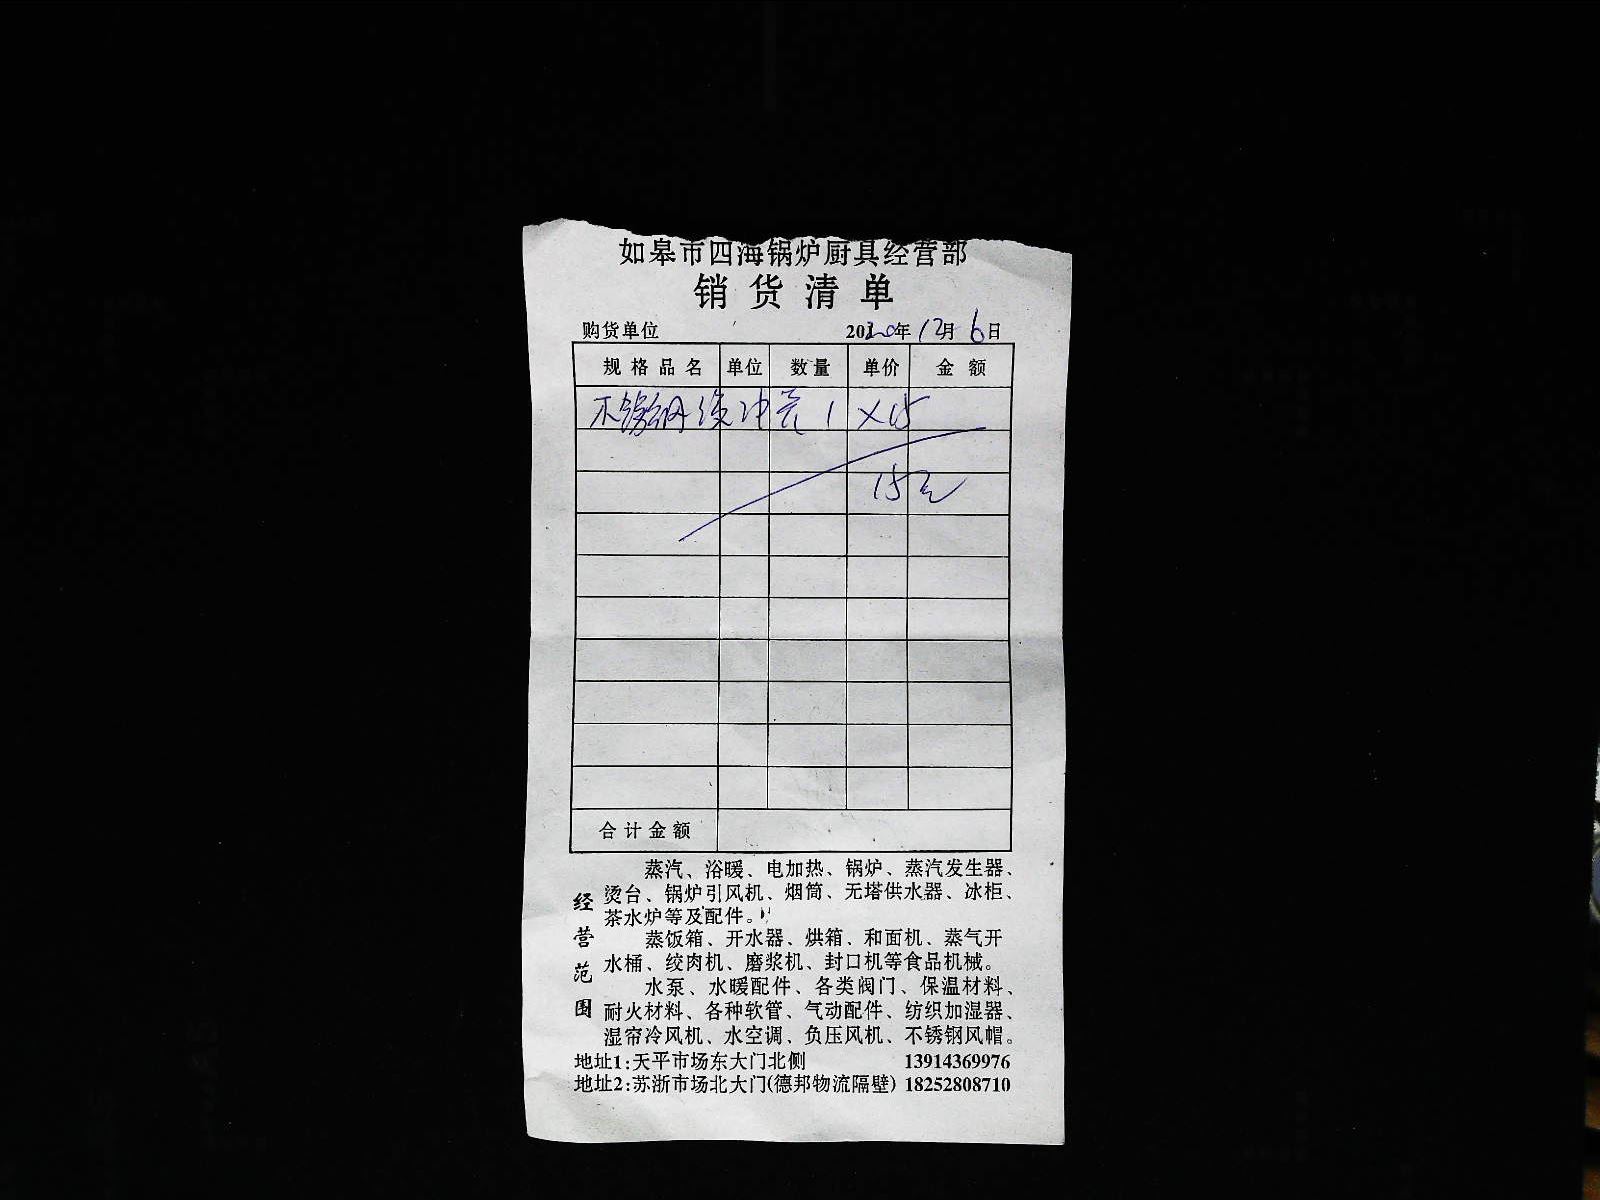 如皋市四海锅炉厨具经营部
销货清单
购货单位 2020年12月6日
规格品名 单位 数量 单价 金额
不锈钢缓冲管 1 ×15
15元
合计金额
经营范围
蒸汽、浴暖、电加热、锅炉、蒸汽发生器、
烫台、锅炉引风机、烟筒、无塔供水器、冰柜、
茶水炉等及配件。
蒸饭箱、开水器、烘箱、和面机、蒸气开
水桶、绞肉机、磨浆机、封口机等食品机械。
水泵、水暖配件、各类阀门、保温材料、
耐火材料、各种软管、气动配件、纺织加湿器、
湿帘冷风机、水空调、负压风机、不锈钢风帽。
地址1:天平市场东大门北侧 13914369976
地址2:苏浙市场北大门(德邦物流隔壁) 18252808710